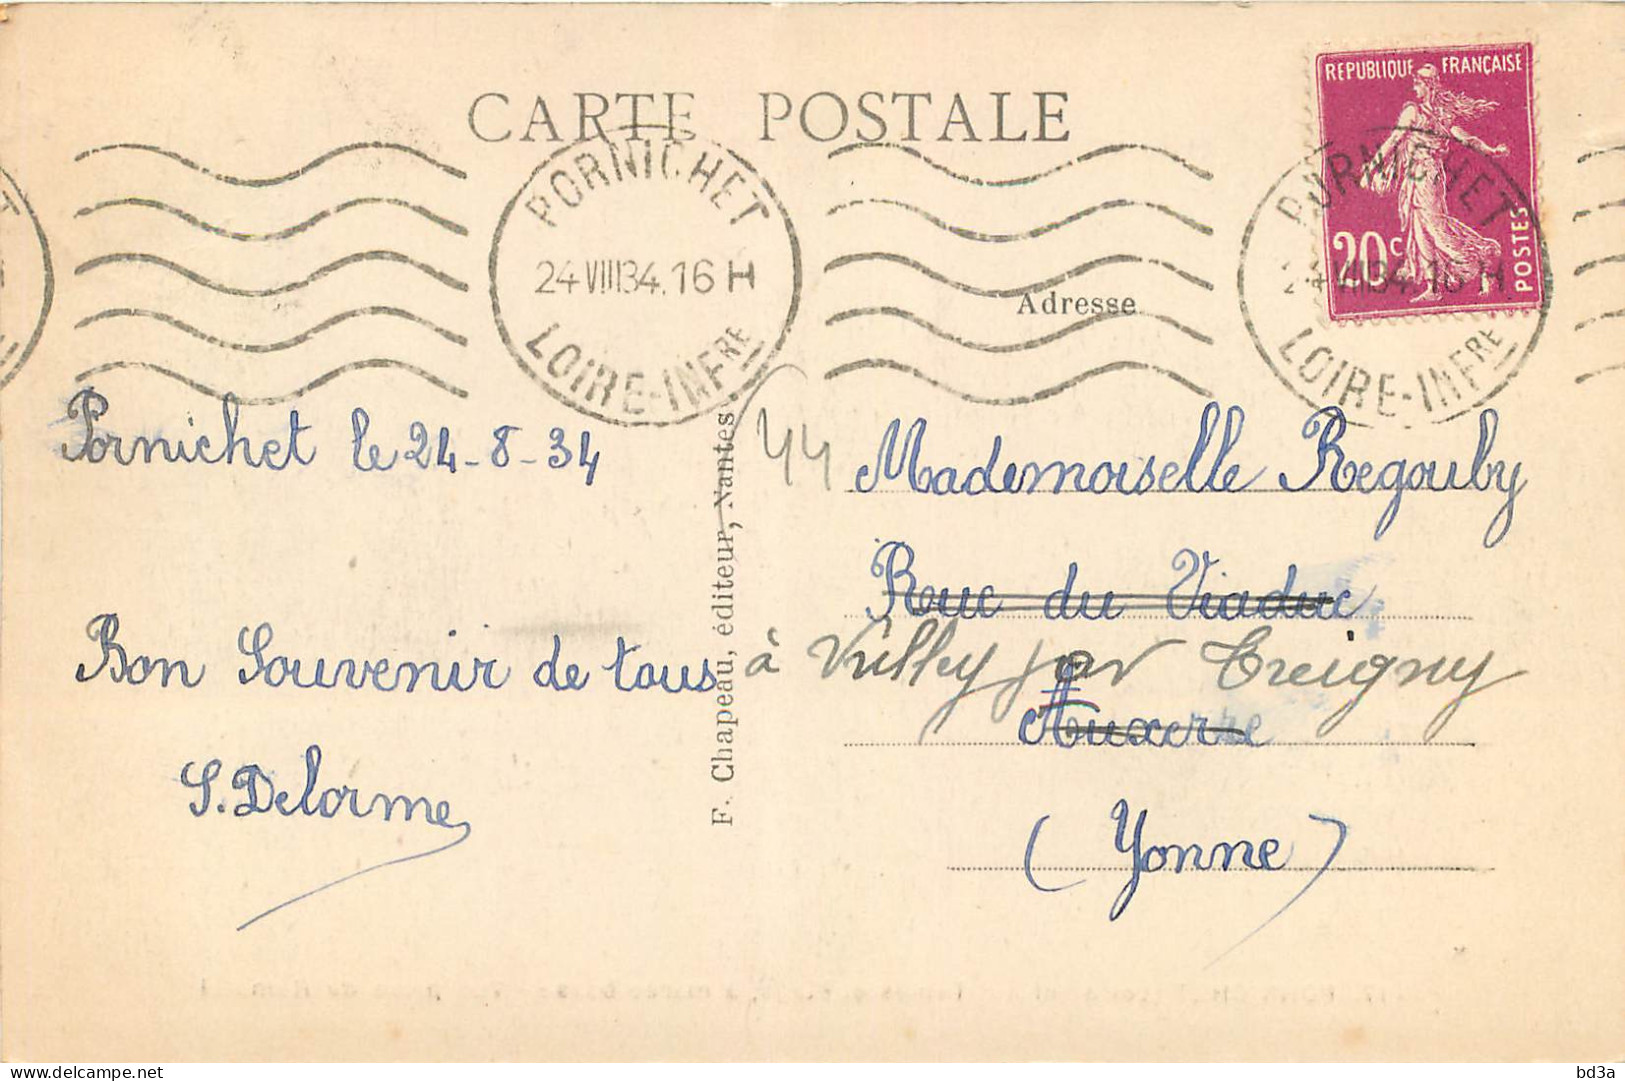 CARTE POSTALE
REPUBLIQUE FRANÇAISE
20c
POSTES
PORNICHET
24 VIII 34. 16 H
LOIRE-INFRE
PORNICHET
24 VIII 34. 16 H
LOIRE-INFRE
Adresse
Pornichet le 24-8-34
Bon Souvenir de tous
S. Delorme
F. Chapeau, éditeur, Nantes
44
Mademoiselle Regouby
Rue du Viaduc
à par Treigny
Auxerre
(Yonne)
bd3a